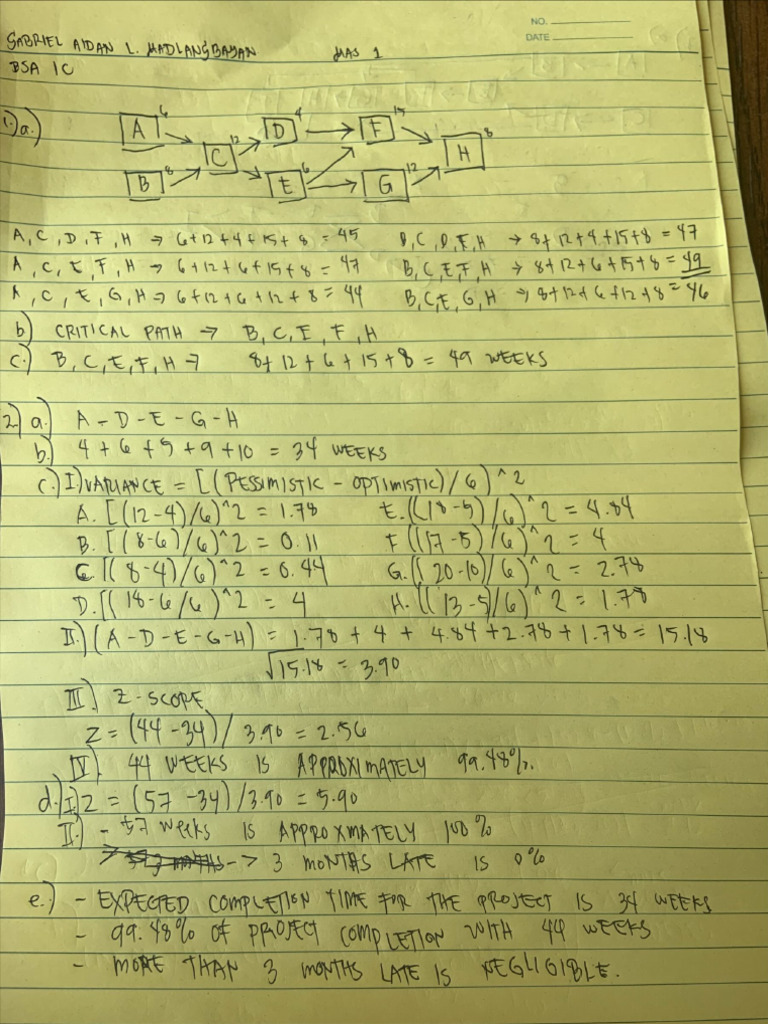 NO.
DATE
GABRIEL AIDAN L. MADLANGBAYAN MAS 1
BSA 1C
1.) a.)
A 6 D 4 F 15
C 12 H 8
B 8 E 6 G 12
A, C, D, F, H → 6+12+4+15+8 = 45 B, C, D, F, H → 8+12+4+15+8 = 47
A, C, E, F, H → 6+12+6+15+8 = 47 B, C, E, F, H → 8+12+6+15+8 = 49
A, C, E, G, H → 6+12+6+12+8 = 44 B, C, E, G, H → 8+12+6+12+8 = 46
b) CRITICAL PATH → B, C, E, F, H
c.) B, C, E, F, H → 8+12+6+15+8 = 49 WEEKS
2.) a.) A - D - E - G - H
b.) 4 + 6 + 5 + 9 + 10 = 34 WEEKS
c.) I) VARIANCE = [(PESSIMISTIC - OPTIMISTIC)/6)^2
A. [(12-4)/6)^2 = 1.78 E. ((18-5)/6)^2 = 4.84
B. [(8-6)/6)^2 = 0.11 F ((17-5)/6)^2 = 4
C [(8-4)/6)^2 = 0.44 G. ((20-10)/6)^2 = 2.78
D. [(18-6/6)^2 = 4 H. ((13-5/6)^2 = 1.78
II.) (A-D-E-G-H) = 1.78 + 4 + 4.84 + 2.78 + 1.78 = 15.18
√15.18 = 3.90
III.) Z-SCORE
Z = (44-34)/3.90 = 2.56
IV) 44 WEEKS IS APPROXIMATELY 99.48%.
d.) I.) Z = (57-34)/3.90 = 5.90
II.) - 57 weeks IS APPROXMATELY 100%
-> 3 MONTHS LATE IS 0%
e.) - EXPECTED COMPLETION TIME FOR THE PROJECT IS 34 WEEKS
- 99.48% OF PROJECT COMPLETION WITH 44 WEEKS
- MORE THAN 3 MONTHS LATE IS NEGLIGIBLE.